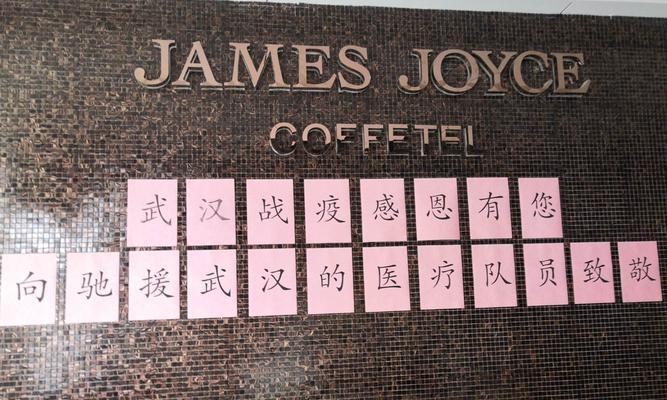 JAMES JOYCE
COFFETEL
武汉战疫感恩有您
向驰援武汉的医疗队员致敬